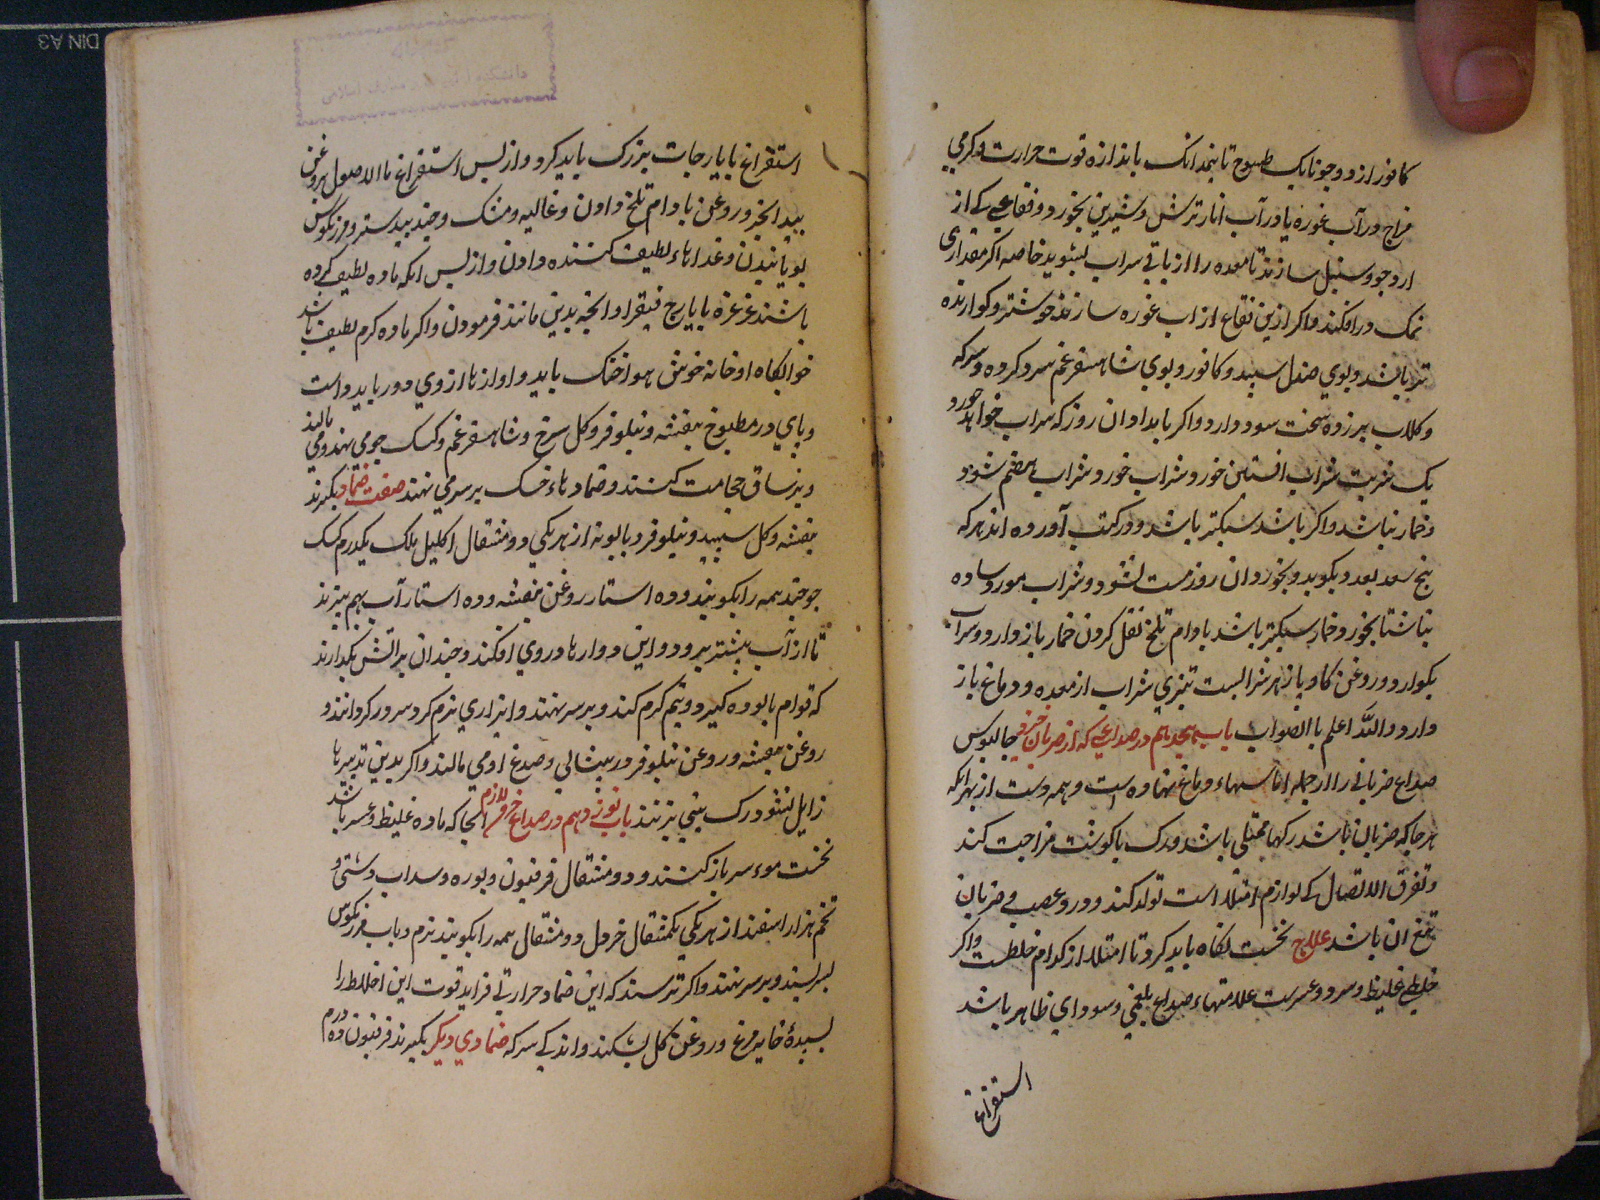 کافور از و وجو تا یک طسوج تا نیم دانک باندازه قوت حرارت و کرمی
مزاج در آب غوره یا در آب انار ترش و شیرین بخورد و فقاعی که از
ارد جو و سنبل سازند تا معده را از باقی سراب بشوید خاصه اکر مقداری
نمک درافکنند و اکر ازین فقاع از اب غوره سازند خوشتر و کوارنده
تر باشد و بوی صندل سپید و کافور و بوی شاهسفرغم سرد کرده و سرکه
و کلاب بر زده سخت سود دارد و اکر بامدادان روز که سراب خواهد خورد
یک شربت شراب افسنتین خورد شراب خورد شراب هضم شود
و خمار نباشد و اکر باشد سبکتر باشد و در کتب آورده اند هر که
پنج بکوبد و بخورد ان روز مست نشود و شراب مورد ساده
بناشتا بخورد خمار سبکتر باشد بادام تلخ نقل کردن خمار باز دارد و سراب
بکوارد و روغن کاو پازهر شرابست تیزی شراب از معده و دماغ باز
دارد واللّه اعلم باالصواب باب هجدهم در صداعی که از ضربان خیزد جالینوس
صداع ضربانی را از جمله اماسهاء دماغ نهاده است و همه دست از بهر انکه
هر جا که ضربان باشد رکها ممتلی باشد و رک با کوشت مزاحمت کند
و تفرق الاتصال که لوازم امتلا است تولد کند و درد عصب و ضربان
تبع ان باشد علاج نخست نکاه باید کرد تا امتلا از کدام خلطست و اکر
خلطی غلیظ و سرد و عسرست علامتهاء صداع بلغمی و سودای ظاهر باشد
استفراغ
استفراغ با یارجات بزرک باید کرد و از پس استفراغ ماالاصول بروغن
بیدانجیر و روغن بادام تلخ دادن و غالیه و مشک و جندبیدستر و مرزنکوش
بویانیدن و غذاهاء لطیف کننده دادن و از پس انکه ماده لطیف کرده
باشند غرغره بایارج فیقرا و انچه بدین مانند فرمودن و اکر ماده کرم لطیف باشد
خوابکاه او خانه خوش هوا خنک باید و اوازها از وی دور باید داشت
و پای در مطبوخ بنفشه و نیلوفر و کل سرخ و شاهسفرغم و کسک جو می نهند و می مالند
و بر ساق حجامت کنند و ضمادهاء خنک بر سر می نهند صفت ضماد بکیرند
بنفشه و کل سپید و نیلوفر و بابونه از هر یکی دو مثقال اکلیل ملک یکدرم کسک
جو چند همه را بکوبند و ده استار روغن بنفشه و ده استار آب بهم بپزند
تا از آب بیشتر برود و این داروها در وی افکنند و چندان بر آتش بکدارند
که قوام پالوده کیرد و نیم کرم کنند و بر سر نهند و ایزاری نرم کرد سر در کردانند و
روغن بنفشه و روغن نیلوفر در پیشانی و صدغ او می مالند و اکر بدین تدبیرها
زایل نشود رک بینی بزنند باب نوزدهم در صداع لازم انجا که ماده غلیظ و عسر باشد
نخست موء سر باز کنند و دو مثقال فرفیون و بوره و سداب دشتی و
تخم هزار اسفند از هر یکی یکمثقال خردل دو مثقال همه را بکوبند نرم و باب مرزنکوش
بسرشند و بر سر نهند و اکر ترسند که این ضماد حرارتی فزاید قوت این اخلاط را
بسپیدهٔ خایه مرغ و روغن کل بشکنند و اندکی سرکه ضمادی دیکر بکیرند فرفیون ده درم